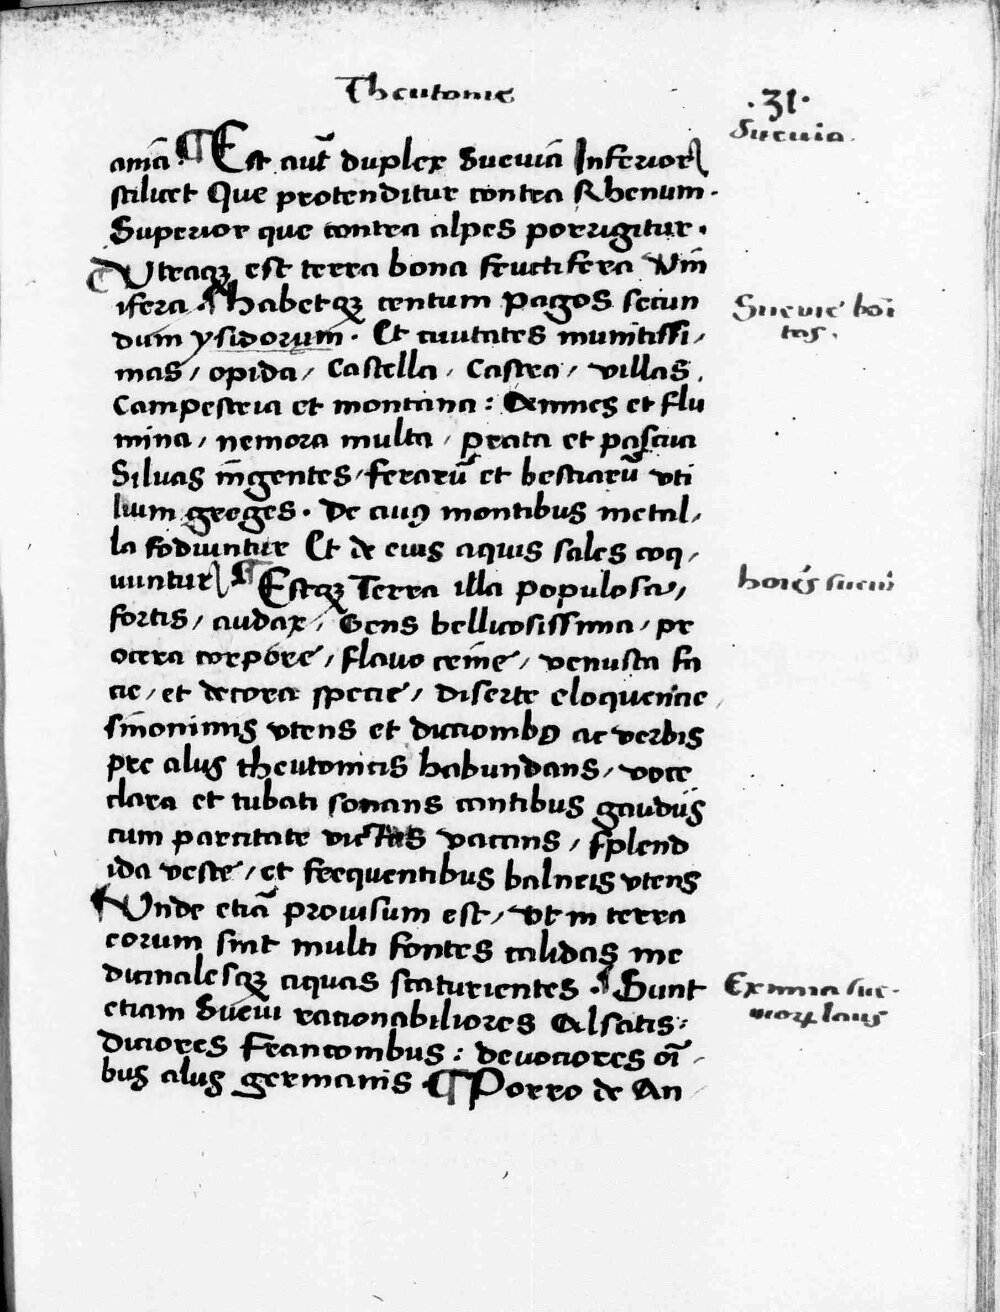 Theutonie
.31.
Sueuia.
amā. ¶ Est aut̄ duplex Sueuiā Inferior
scilicet Que protenditur contra Rhenum.
Superior que contra alpes porrigitur.
Vtraqꝫ est terra bona fructifera Vin̄
ifera. habetqꝫ centum pagos secun
Sueuie boī
tas.
dum ysidorum. Et ciuitates munitissi/
mas / opida / Castella / Castra / villas.
Campestria et montana: Amnes et flu
mina / nemora multa / prata et pascua
Siluas in̄gentes / ferarū et bestiarū vti
lium greges. De cuiꝰ montibus metal/
la fodiuntur Et de eius aquis sales coq/
uuntur ¶ Estqꝫ Terra illa populosa /
hoīes sueui
fortis / audax / Gens bellicosissima / pr
ocera corpore / flauo crine / venusta fa
cie / et decora specie / diserte eloquencie
sinonimis vtens et diccionibꝰ ac verbis
pre alijs theutonicis habundans / voce
clara et tubali sonans cantibus gaudijs
cum parcitate victus vacans / splend
ida veste / et frequentibus balneis vtens
Vnde etiā prouisum est / vt in terra
eorum sint multi fontes calidas me
dicinalesqꝫ aquas scaturientes. ¶ Sunt
Eximia sue-
uoꝝ laus
etiam Sueui racionabiliores Alsatis:
diciores Franconibus: deuociores oī/
bus alijs germanis. ¶ Porro de An/